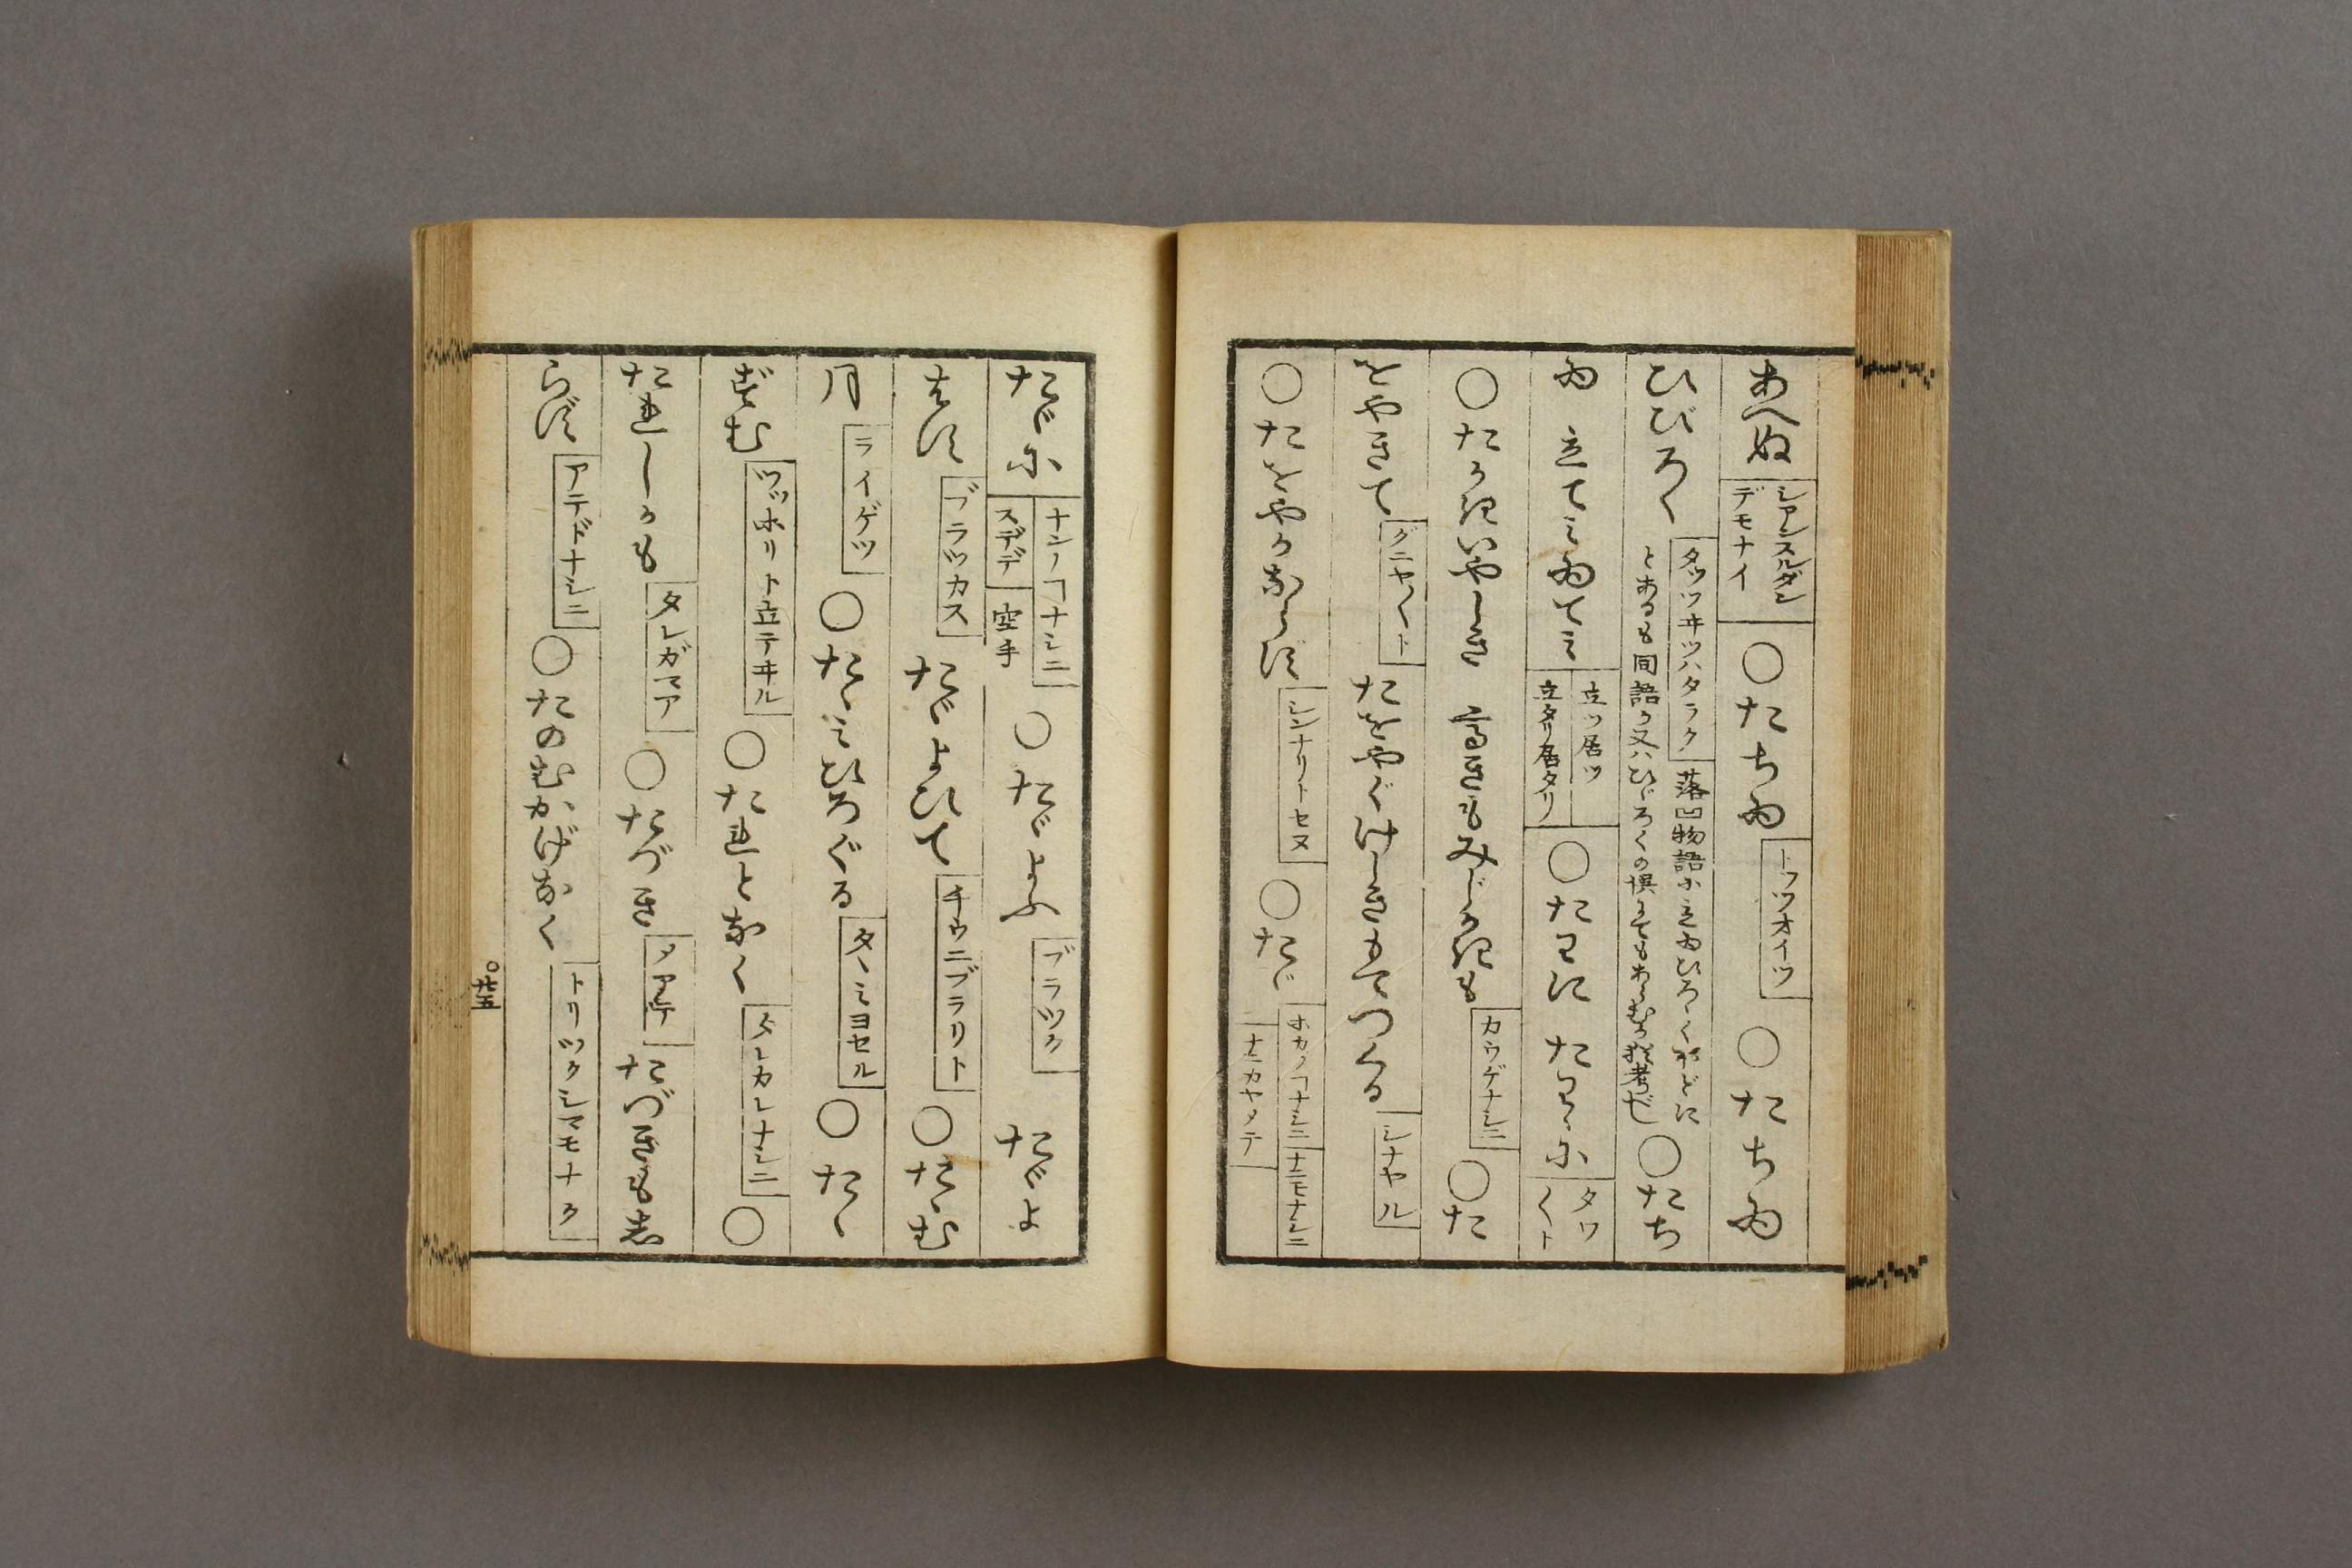 あへぬ シアンスルダン デモナイ ○たちゐ トツツオイツ ○たちゐ
ひびろく タツツヰツハタラク 落凹物語に立ゐひろくなどに とあるも同語か又はひびろくの誤にてもあらむか猶考べし ○たち
ゐ 立てみゐてみ 立ツ居ツ 立タリ居タリ ○たわに たわゝに タワ〱ト
○たかきいやしき 高きもみじかきも カウゲナシニ ○た
をやきて グニヤ〱ト たをやぐけしきもてつくる シナヤル
○たをやかならず シンナリトセヌ ○たゞ ホカノヿナシニ ナニモナシニ ナニカヤメテ
たゞに ナンノヿナシニ スデデ 空手 ○たゞよふ ブラツク たゞよ
はす ブラツカス たゞよひて チウニブラリト ○たゝむ
月 ライゲツ ○たゝみひろぐる タヽミヨセル ○たゝ
ずむ ツツホリト立テヰル ○たれとなく タレカレナシニ ○
たれしかも タレガマア ○たづき メアテ たづきもし
らず アテドナシニ ○たのむかげなく トリツクシマモナク
○廿五